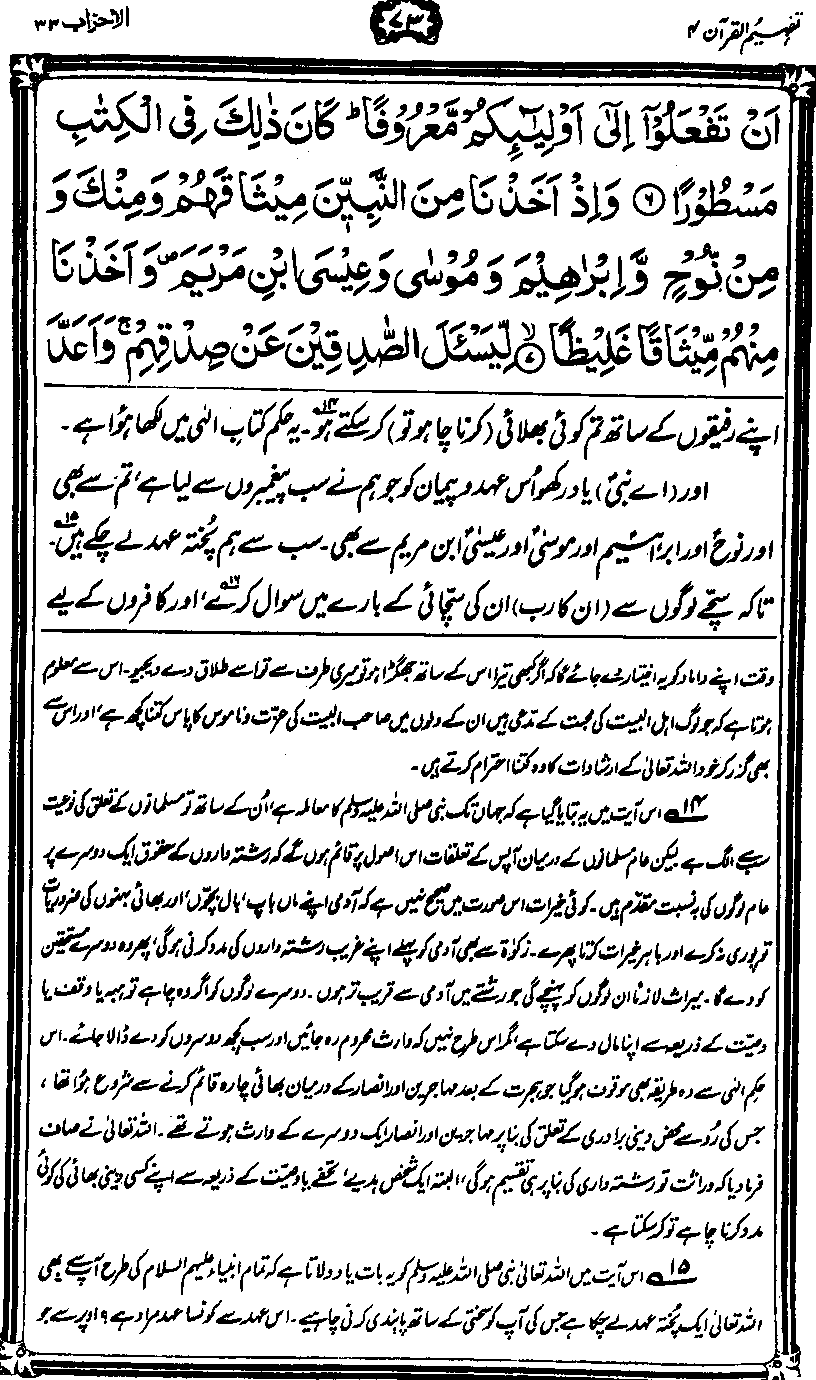 تفہیم القرآن ۴
۷۳
الاحزاب ۳۳
اَنْ تَفْعَلُوْٓا اِلٰٓى اَوْلِيٰٓئِكُمْ مَّعْرُوْفًا ؕ كَانَ ذٰلِكَ فِي الْكِتٰبِ
مَسْطُوْرًا ۝۶ وَاِذْ اَخَذْنَا مِنَ النَّبِيّٖنَ مِيْثَاقَهُمْ وَمِنْكَ وَ
مِنْ نُّوْحٍ وَّاِبْرٰهِيْمَ وَمُوْسٰى وَعِيْسَى ابْنِ مَرْيَمَ ۪ وَاَخَذْنَا
مِنْهُمْ مِّيْثَاقًا غَلِيْظًا ۝۷ۙ لِّيَسْـَٔلَ الصّٰدِقِيْنَ عَنْ صِدْقِهِمْ ۚ وَاَعَدَّ
اپنے رفیقوں کے ساتھ تم کوئی بھلائی (کرنا چاہو تو) کر سکتے ہو۱۴۔ یہ حکم کتاب الٰہی میں لکھا ہوا ہے۔
اور (اے نبیؐ) یاد رکھو اُس عہد و پیمان کو جو ہم نے سب پیغمبروں سے لیا ہے، تم سے بھی
اور نوحؑ اور ابراہیمؑ اور موسیٰؑ اور عیسیٰؑ ابن مریم سے بھی۔ سب سے ہم پختہ عہد لے چکے ہیں۱۵۔
تاکہ سچے لوگوں سے (ان کا رب) ان کی سچائی کے بارے میں سوال کرے۱۶، اور کافروں کے لیے
وقت اپنے داماد کو یہ اختیار دے جائے گا کہ اگر کبھی تیرا اس کے ساتھ جھگڑا ہو تو میری طرف سے تو اسے طلاق دے دیجیو۔ اس سے معلوم
ہوتا ہے کہ جو لوگ اہل البیت کی محبت کے مدعی ہیں ان کے دلوں میں صاحب البیت کی عزت و ناموس کا پاس کتنا کچھ ہے، اور اس سے
بھی گزر کر خود اللہ تعالیٰ کے ارشادات کا وہ کتنا احترام کرتے ہیں۔
۱۴ اس آیت میں یہ بتایا گیا ہے کہ جہاں تک نبی صلی اللہ علیہ وسلم کا معاملہ ہے، اُن کے ساتھ تو مسلمانوں کے تعلق کی نوعیت
سب سے الگ ہے لیکن عام مسلمانوں کے درمیان آپس کے تعلقات اس اصول پر قائم ہوں گے کہ رشتہ داروں کے حقوق ایک دوسرے پر
عام لوگوں کی بہ نسبت مقدم ہیں۔ کوئی خیرات اس صورت میں صحیح نہیں ہے کہ آدمی اپنے ماں باپ، بال بچوں، اور بھائی بہنوں کی ضروریات
تو پوری نہ کرے اور باہر خیرات کرتا پھرے۔ زکوٰۃ سے بھی آدمی کو پہلے اپنے غریب رشتہ داروں کی مدد کرنی ہوگی، پھر وہ دوسرے مستحقین
کو دے گا۔ میراث لازماً ان لوگوں کو پہنچے گی جو رشتے میں آدمی سے قریب تر ہوں۔ دوسرے لوگوں کو اگر وہ چاہے تو ہبہ یا وقف یا
وصیت کے ذریعہ سے اپنا مال دے سکتا ہے، مگر اس طرح نہیں کہ وارث محروم رہ جائیں اور سب کچھ دوسروں کو دے ڈالا جائے۔ اس
حکم الٰہی سے وہ طریقہ بھی موقوف ہو گیا جو ہجرت کے بعد مہاجرین اور انصار کے درمیان بھائی چارہ قائم کرنے سے شروع ہوا تھا،
جس کی رُو سے محض دینی برادری کے تعلق کی بنا پر مہاجرین اور انصار ایک دوسرے کے وارث ہوتے تھے۔ اللہ تعالیٰ نے صاف
فرما دیا کہ وراثت تو رشتہ داری کی بنا پر ہی تقسیم ہوگی، البتہ ایک شخص ہدیے، تحفے یا وصیت کے ذریعہ سے اپنے کسی دینی بھائی کی کوئی
مدد کرنا چاہے تو کر سکتا ہے۔
۱۵ اس آیت میں اللہ تعالیٰ نبی صلی اللہ علیہ وسلم کو یہ بات یاد دلاتا ہے کہ تمام انبیاء علیہم السلام کی طرح آپ سے بھی
اللہ تعالیٰ ایک پختہ عہد لے چکا ہے جس کی آپ کو سختی کے ساتھ پابندی کرنی چاہیے۔ اس عہد سے کونسا عہد مراد ہے؟ اوپر سے جو